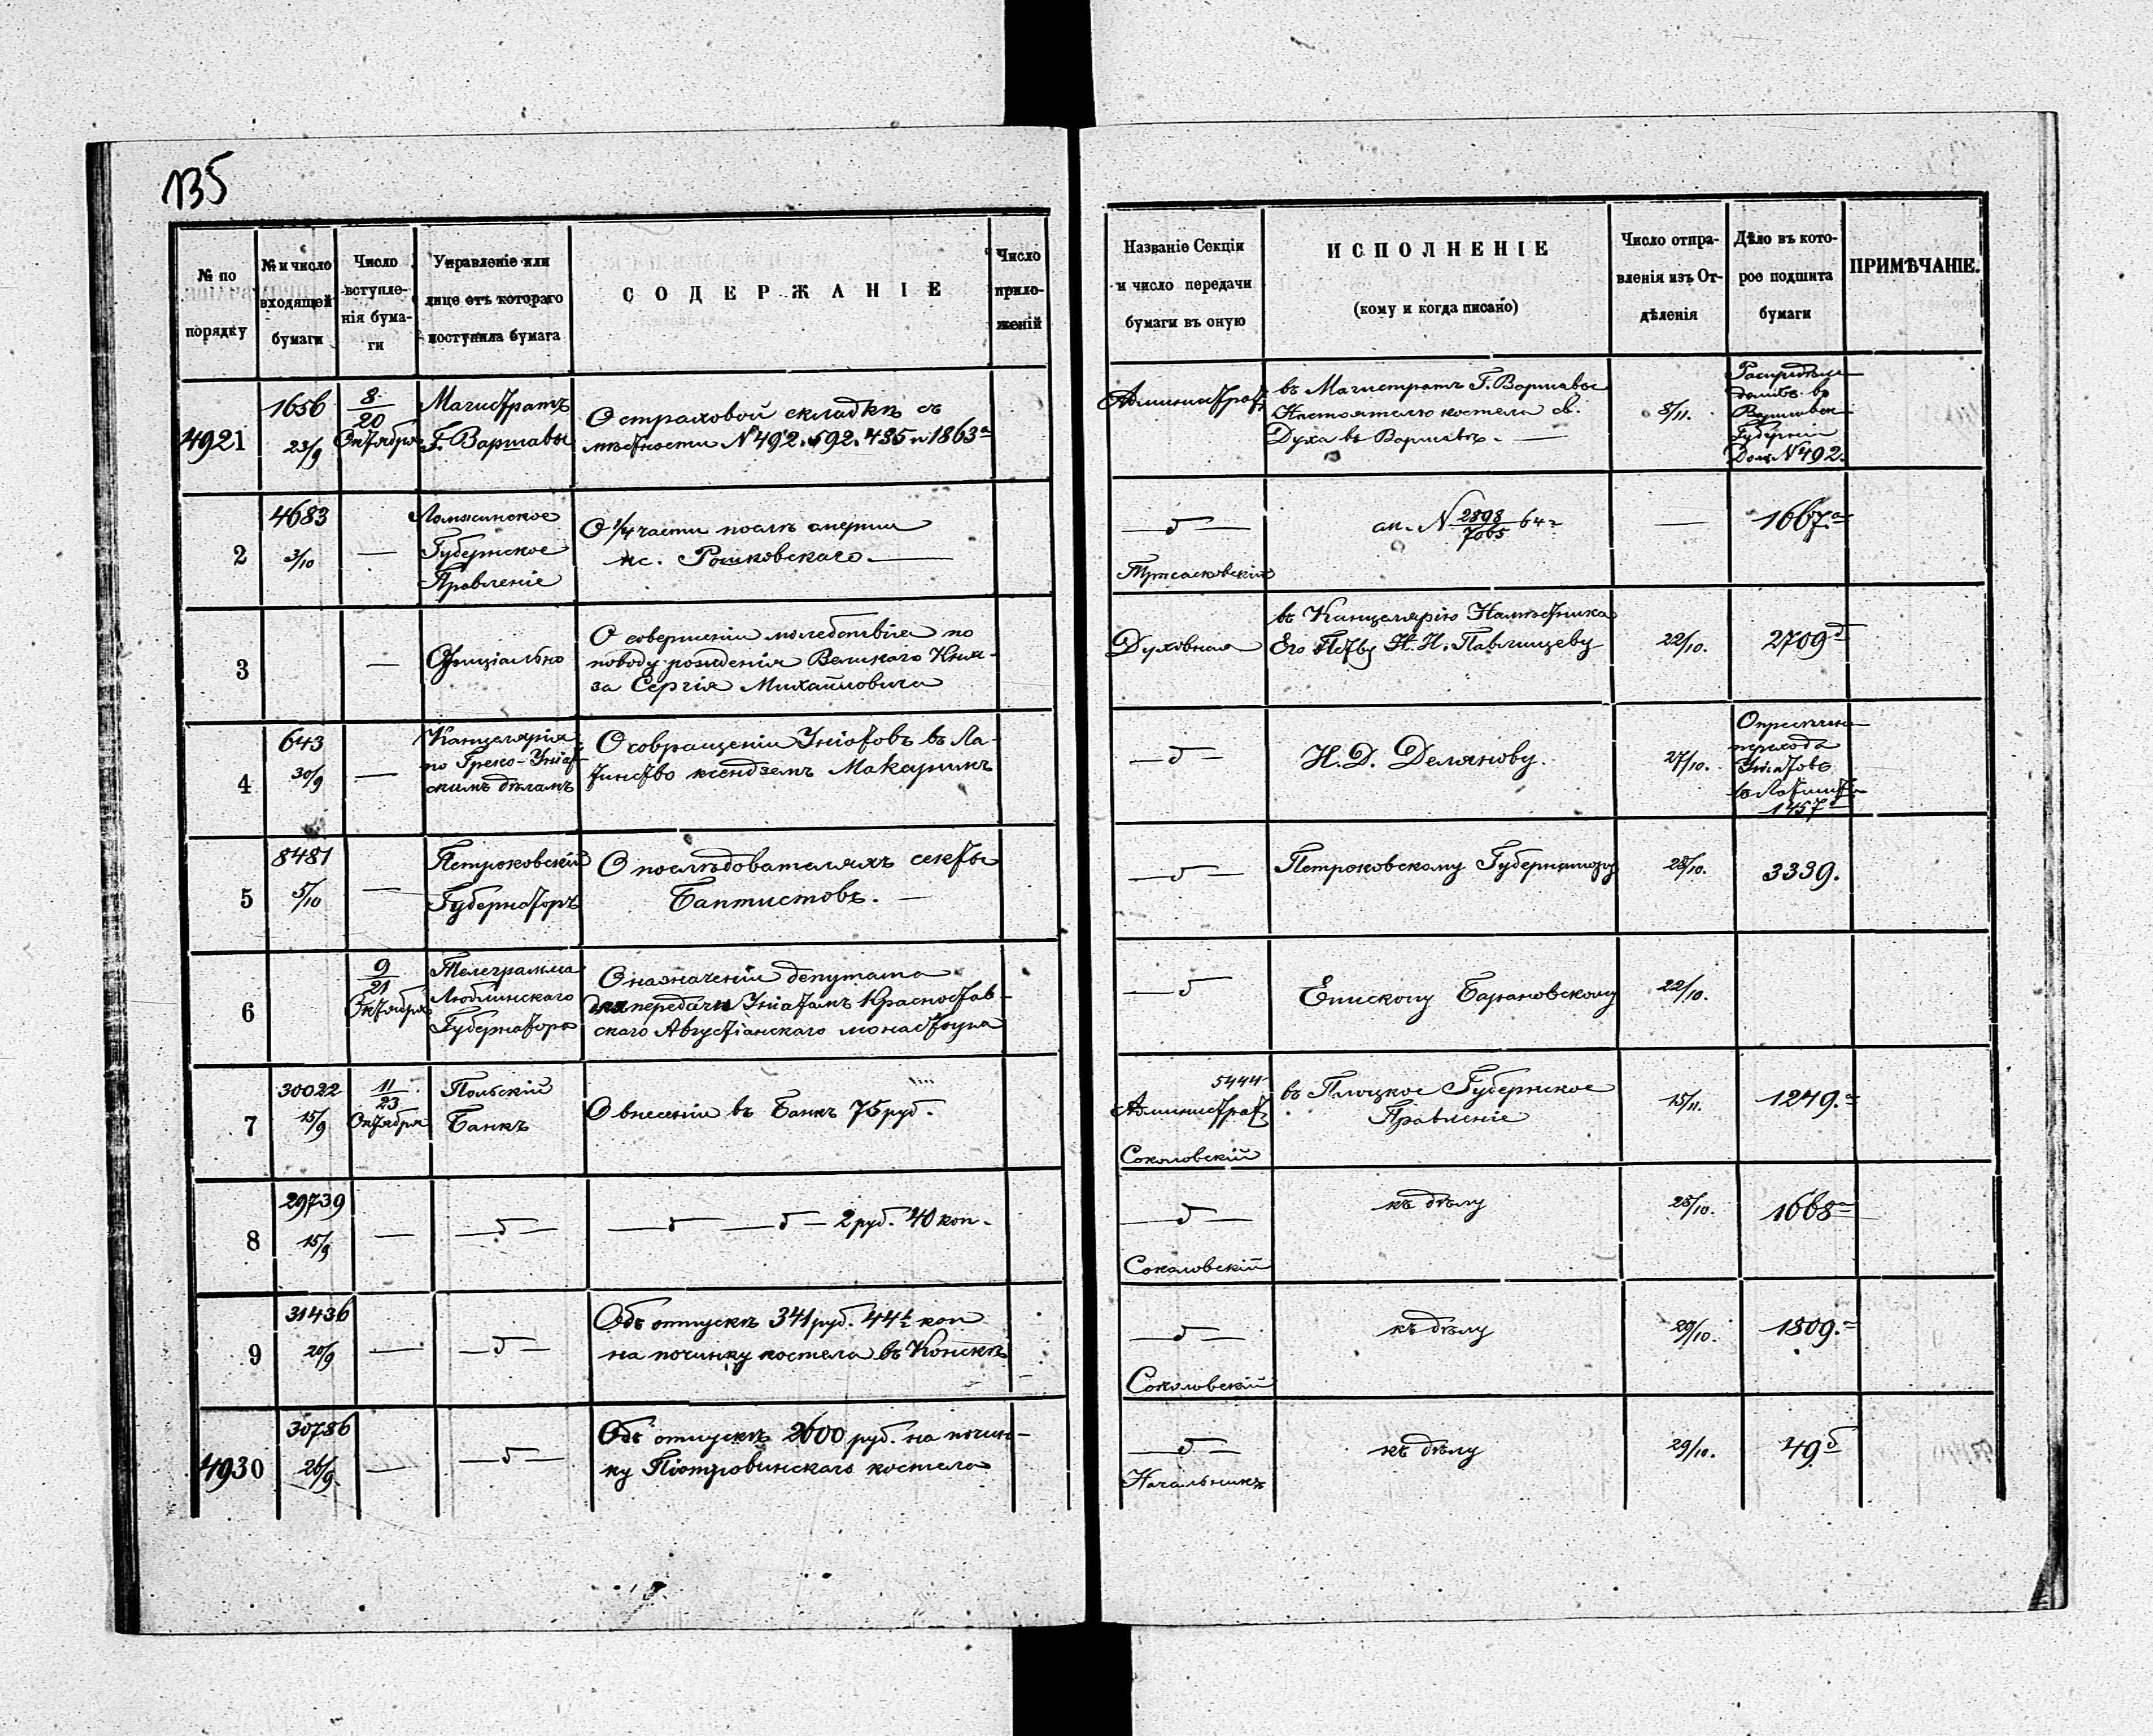 135
№ по порядку
№ и число входящей бумаги
Число вступле-
нія бума-
ги
Управленіе или
лице отъ котораго
поступила бумага
СОДЕРЖАНІЕ
Число
прило-
женій
Названіе Секціи
и число передачи
бумаги въ оную
ИСПОЛНЕНІЕ
(кому и когда писано)
Число отпра-
вленія изъ От-
дѣленія
Дѣло въ кото-
рое подшита
бумаги
ПРИМѢЧАНІЕ.
4921
1656
23/9
8/20
Октября
Магистратъ
Г. Варшавы
О страховой складкѣ съ
мѣстности № 492. 592. 435 и 1863а
Администрат
въ Магистратъ Г. Варшавы
Настоятелю костела св.
Духа въ Варшавѣ. —
8/11.
въ
Варшавск
Губерніи
Домъ № 492.
2
4683
3/10
—
Ломжинское
Губернское
Правленіе
О 1/4 части послѣ смерти
кс. Рошковскаго —
— δ —
№ 2898/7065 64 г
—
1667.а
3
—
Офиціально
О совершеніи молебствія по
поводу рожденія Великаго Кня-
за Сергія Михайловича
Духовная
въ Канцелярію Намѣстника
Его Н. Н. Павлищеву
22/10.
2709 δ
4
643
30/9
—
Канцелярія
по Греко-Уніат-
скимъ дѣламъ
О совращеніи Уніатовъ въ Ла-
тинство ксендземъ Макаримъ
— δ —
И. Д. Делянову.
27/10.
перехода
Уніатовъ
1457
5
8481
5/10
—
Петроковскій
Губернаторъ
О послѣдователяхъ секты
Баптистовъ. —
— δ —
Петроковскому Губернатору
28/10.
3339.
6
9/21
Октября
Телеграмма
Люблинскаго
Губернатора
О назначеніи депутата
для передачи Уніатамъ Красностав-
скаго Августіанскаго монастыря
— δ
Епископу Барановскому
22/10.
7
30022
15/9
11/23
Октября
Польскій
Банкъ
О внесеніи въ Банкъ 75 руб.
5444
Администрат
Соколовскій
въ Плоцкое Губернское
Правленіе
15/11.
1249.а
8
29739
15/9
—
— δ —
— δ — — δ — 2 руб. 40 коп.
— δ —
Соколовскій
къ дѣлу
25/10.
1668а
9
31436
20/9
—
— δ —
Объ отпускѣ 341 руб. 44½ коп
на починку костела въ Конскѣ
— δ —
Соколовскій
къ дѣлу
29/10.
1809.а
4930
30786
26/9
—
— δ —
Объ отпускѣ 2600 руб. на почин-
ку Піотровинскаго костела
— δ —
Начальникъ
къ дѣлу
29/10.
49 δ